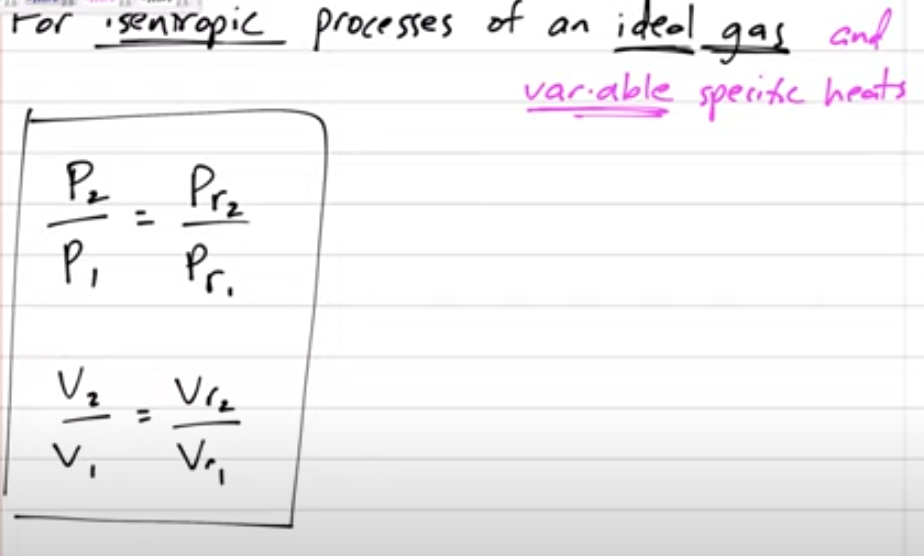 For isentropic processes of an ideal gas and
variable specific heats
P₂/P₁ = Pr₂/Pr₁
V₂/V₁ = Vr₂/Vr₁